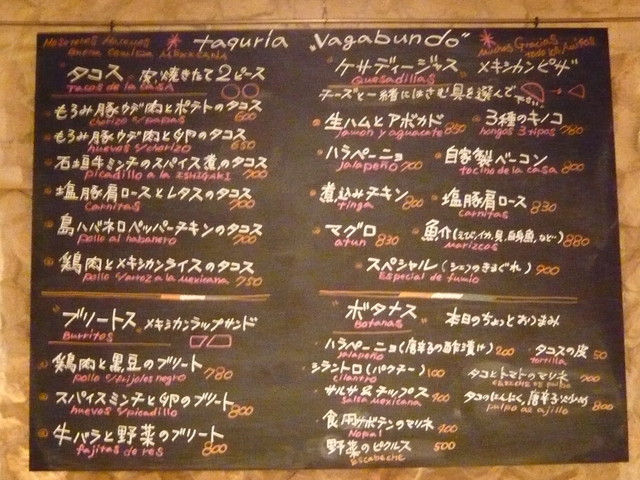 taquria "Vagabundo"
Muchas Gracias
todo los Amigos
タコス 窯焼きたて2ピース
Tacos de la casa
もろみ豚ウデ肉とポテトのタコス
chorizo y/papas 600
もろみ豚ウデ肉と卵のタコス
huevos y/chorizo 650
石垣牛ミンチのスパイス煮のタコス
picadillo a la ISHIGAKI 700
塩豚肩ロースとレタスのタコス
Carnitas 700
島ハバネロペッパーチキンのタコス
pollo al habanero 700
鶏肉とメキシカンライスのタコス
pollo y/arroz a la mexicana 750
ブリートス メキシカンラップサンド
Burritos
鶏肉と黒豆のブリート
pollo y/frijoles negro 780
スパイスミンチと卵のブリート
huevos y/picadillo 800
牛バラと野菜のブリート
fajitas de res 800
ケサディージャス メキシカンピザ
Quesadillas
チーズと一緒にはさむ具を選んで
生ハムとアボカド
jamon y aguacate 850
3種のキノコ
hongos 3 tipos 780
ハラペーニョ
jalapeño 700
自家製ベーコン
tocino de la casa 800
煮込みチキン
tinga 800
塩豚肩ロース
carnitas 830
マグロ
atun 830
魚介(えび、イカ、貝、白身魚、など…)
Marizcos 880
スペシャル(シェフのきまぐれ) 900
Especial de
ボタナス 本日のちょっとおつまみ
Botanas
ハラペーニョ(唐辛子の酢漬け) 200
jalapeño
タコスの皮 50
tortilla
シラントロ(パクチー) 100
cilantro
タコとトマトのマリネ 700
サルサ&チップス 400
Salsa Mexicana
タコのにんにく、唐辛子炒め 800
pulpo al ajillo
食用サボテンのマリネ 400
Nopal
野菜のピクルス 500
Escabeche